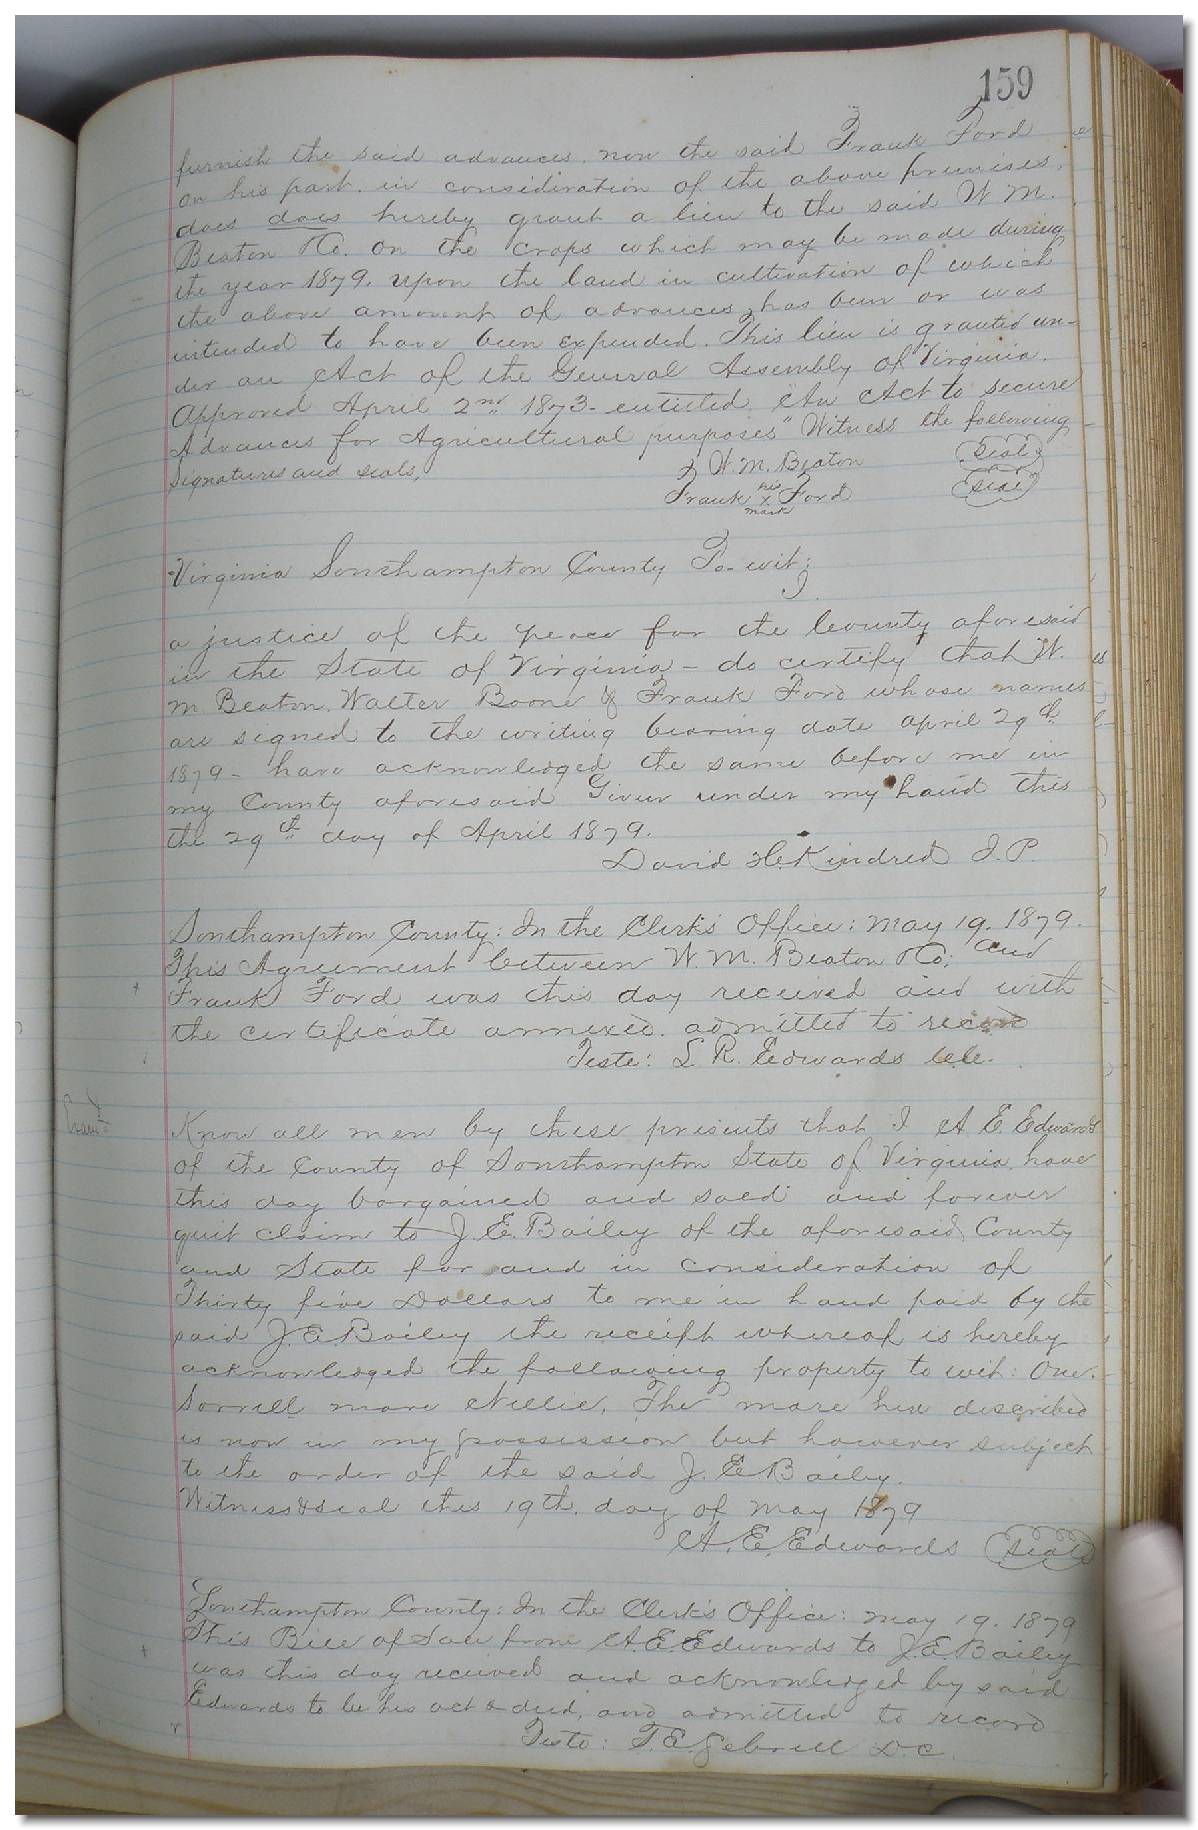 159
furnish the said advances. now the said Frank Ford
on his part. in consideration of the above premises,
does does hereby grant a lien to the said W M.
Beaton & Co. on the crops which may be made during
the year 1879. upon the land in cultivation of which
the above amount of advances has been or was
intended to have been expended. This lien is granted un-
der an Act of the General Assembly of Virginia.
Approved April 2nd 1873 - entitled "An Act to secure
Advances for Agricultural purposes" Witness the following
Signatures and seals,
W. M. Beaton Seal
Frank his X mark Ford Seal
Virginia Southampton County To-wit:
I
a justice of the peace for the County aforesaid
in the State of Virginia - do certify that W.
M Beaton. Walter Boone & Frank Ford whose names
are signed to the writing bearing date April 29th
1879 - have acknowledged the same before me in
my County aforesaid Given under my hand this
the 29th day of April 1879.
David H. Kindred J. P.
Southampton County: In the Clerk's Office: May 19. 1879.
This Agreement between W. M. Beaton & Co: and
Frank Ford was this day received and with
the certificate annexed. admitted to record
Teste: L. R. Edwards CC.
Know all men by these presents that I A E. Edwards
of the County of Southampton State of Virginia, have
this day bargained and sold and forever
quit claim to J. E. Bailey of the aforesaid County
and State for and in consideration of
Thirty five Dollars to me in hand paid by the
said J. E. Bailey the receipt whereof is hereby
acknowledged the following property to wit: One.
Sorrell mare Nellie, The mare here described
is now in my possession but however subject
to the order of the said J. E. Bailey.
Witness & seal this 19th. day of May 1879
A. E. Edwards Seal
Southampton County: In the Clerk's Office: May 19. 1879
This Bill of Sale from A. E. Edwards to J. E. Bailey
was this day received and acknowledged by said
Edwards to be his act & deed, and admitted to record
Teste: T. E. D.C.